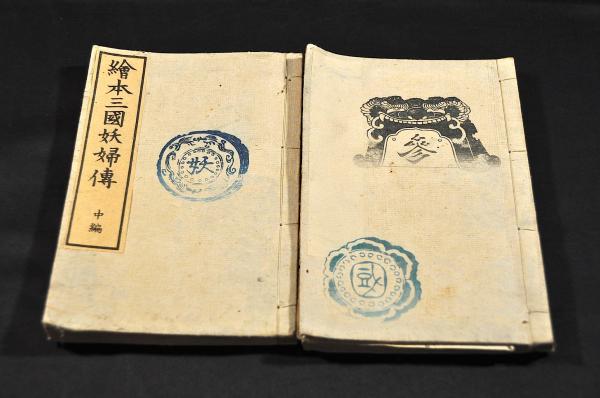 繪本三國妖婦傳
中編
妖
參